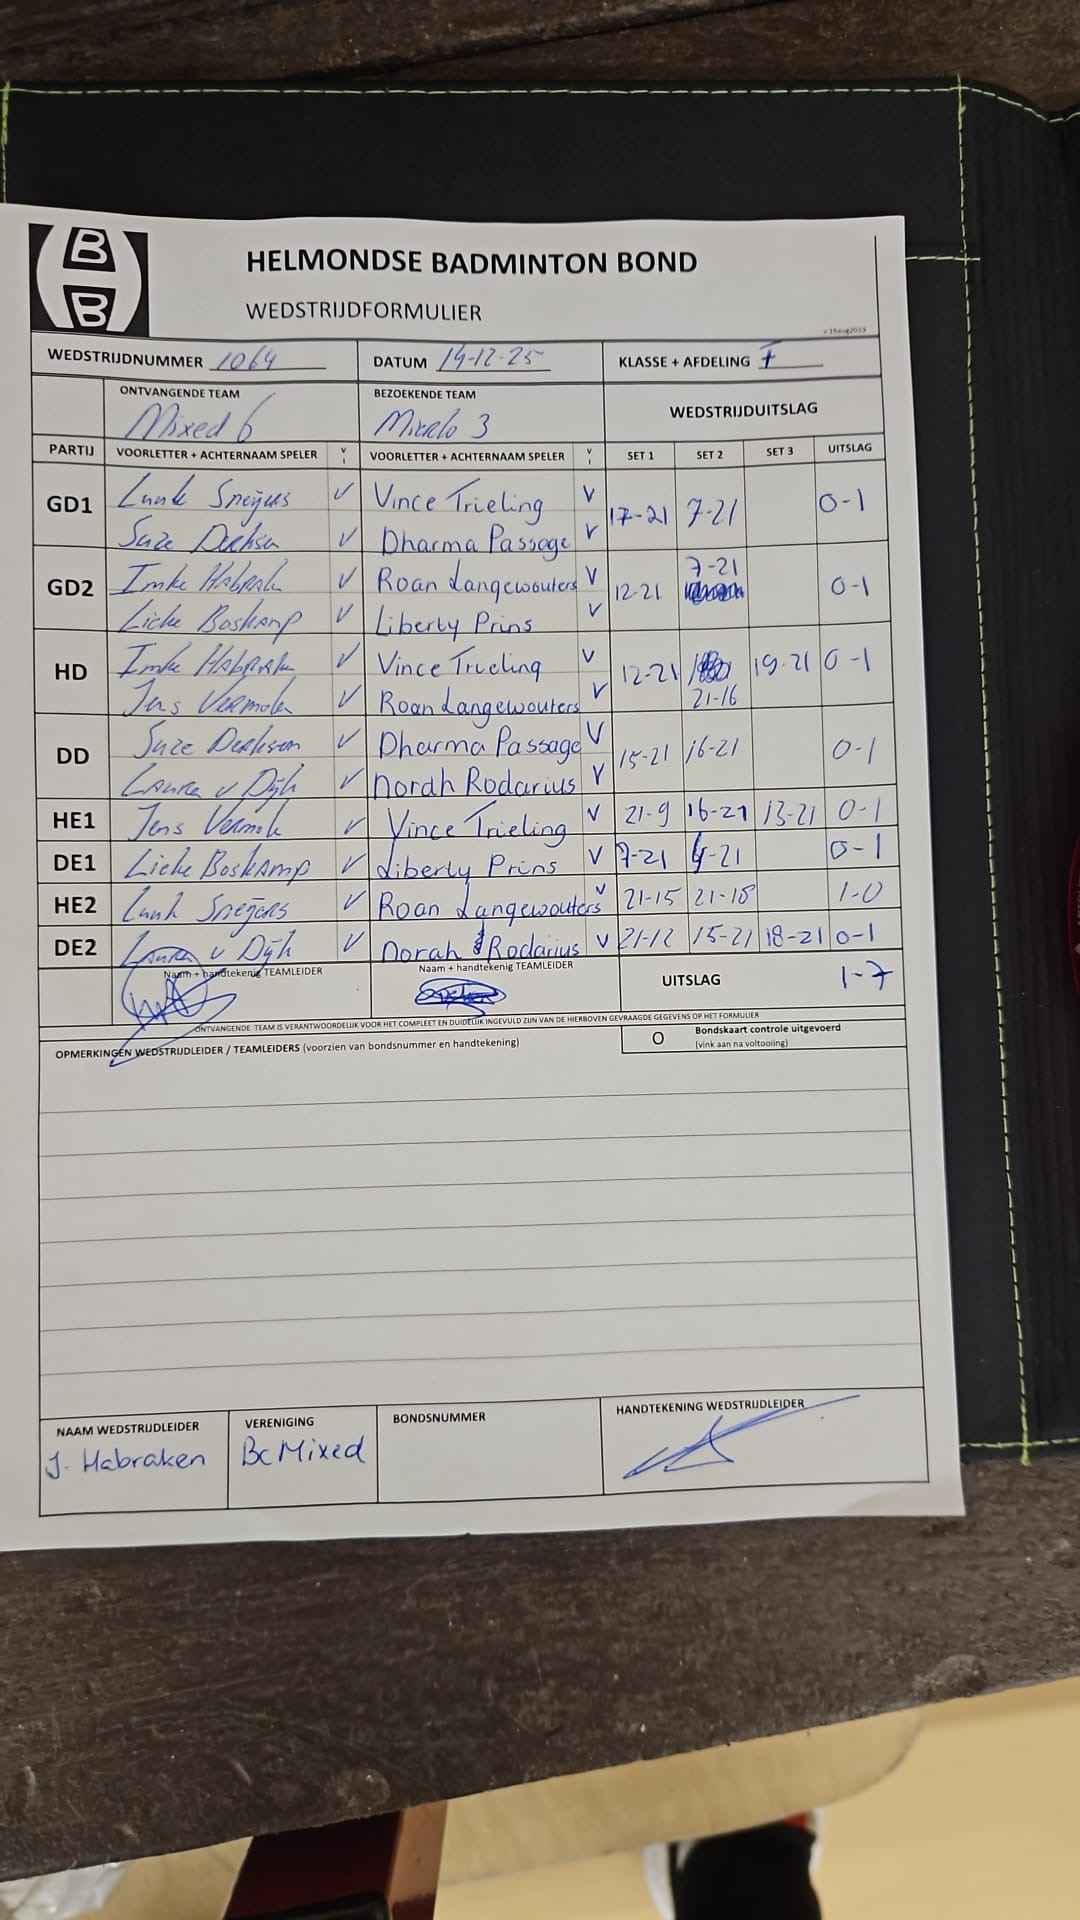 B
B
HELMONDSE BADMINTON BOND
WEDSTRIJDFORMULIER
v 15aug2013
WEDSTRIJDNUMMER 1064 DATUM 14-12-25 KLASSE + AFDELING F
ONTVANGENDE TEAM BEZOEKENDE TEAM WEDSTRIJDUITSLAG
Mixed 6 Mierlo 3
PARTIJ VOORLETTER + ACHTERNAAM SPELER V I VOORLETTER + ACHTERNAAM SPELER V I SET 1 SET 2 SET 3 UITSLAG
GD1 Luuk Sneijers V Vince Trieling V 17-21 7-21 0-1
Suze Derksen V Dharma Passage V
GD2 Imke Habrak V Roan Langewouters V 12-21 7-21 0-1
Lieke Boskamp V Liberty Prins V
HD Imke Habrak V Vince Trieling V 12-21 21-16 19-21 0-1
Jens Vermolen V Roan Langewouters V
DD Suze Derksen V Dharma Passage V 15-21 16-21 0-1
Laura v Dijk V Norah Rodarius V
HE1 Jens Vermol V Vince Trieling V 21-9 16-21 13-21 0-1
DE1 Lieke Boskamp V Liberty Prins V 7-21 4-21 0-1
HE2 Luuk Sneijers V Roan Langewouters V 21-15 21-18 1-0
DE2 Laura v Dijk V Norah Rodarius V 21-12 15-21 18-21 0-1
Naam + handtekenig TEAMLEIDER Naam + handtekenig TEAMLEIDER UITSLAG 1-7
ONTVANGENDE TEAM IS VERANTWOORDELIJK VOOR HET COMPLEET EN DUIDELIJK INGEVULD ZIJN VAN DE HIERBOVEN GEVRAAGDE GEGEVENS OP HET FORMULIER
OPMERKINGEN WEDSTRIJDLEIDER / TEAMLEIDERS (voorzien van bondsnummer en handtekening) O Bondskaart controle uitgevoerd
(vink aan na voltooiing)
NAAM WEDSTRIJDLEIDER VERENIGING BONDSNUMMER HANDTEKENING WEDSTRIJDLEIDER
J. Habraken Bc Mixed